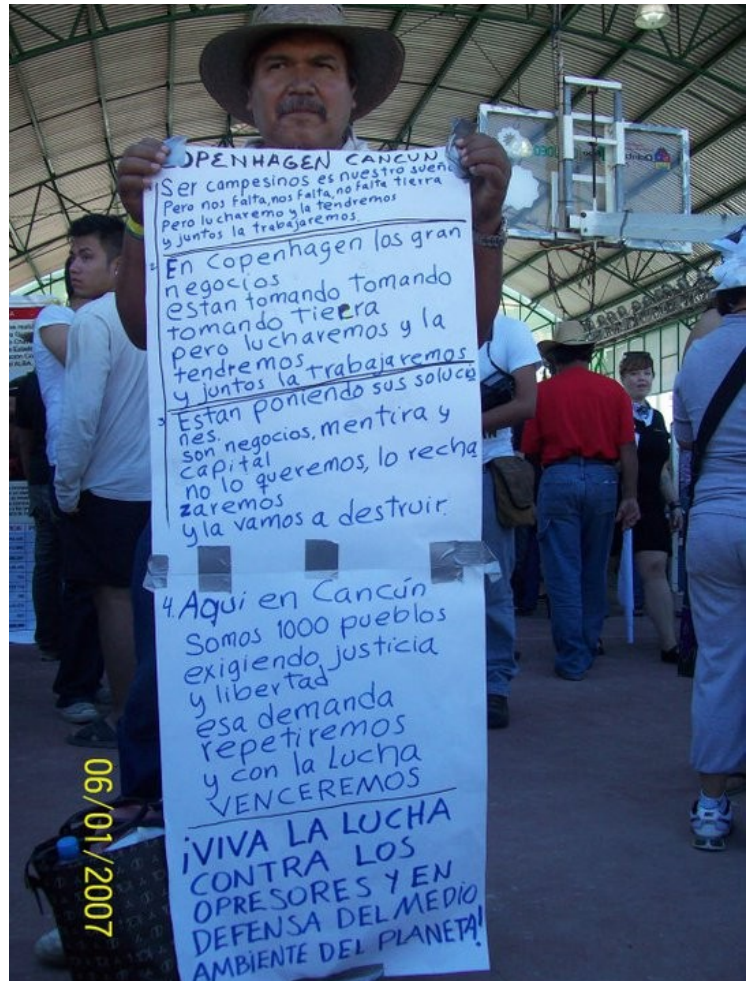 OPENHAGEN CANCUN
1 Ser campesinos es nuestro sueñ
Pero nos falta, nos falta, no falta tierra
Pero lucharemo y la tendremos
y juntos la trabajaremos
2 En Copenhagen los gran
negocios
estan tomando tomando
tomando tierra
pero lucharemos y la
tendremos
y juntos la trabajaremos
3 Estan poniendo sus solucio
nes.
son negocios, mentira y
capital
no lo queremos, lo recha
zaremos
y la vamos a destruir.
4. Aqui en Cancún
Somos 1000 pueblos
exigiendo justicia
y libertad
esa demanda
repetiremos
y con la Lucha
VENCEREMOS
¡VIVA LA LUCHA
CONTRA LOS
OPRESORES Y EN
DEFENSA DEL MEDIO
AMBIENTE DEL PLANETA!
06/01/2007